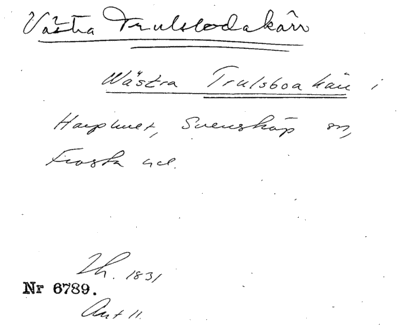 Västra Trulsbodakärr
Wästra Trulsboa kärr i
Harphult, Svensköp sn,
Frosta hd.
Lh. 1831
Nr 6789.
Akt 11.